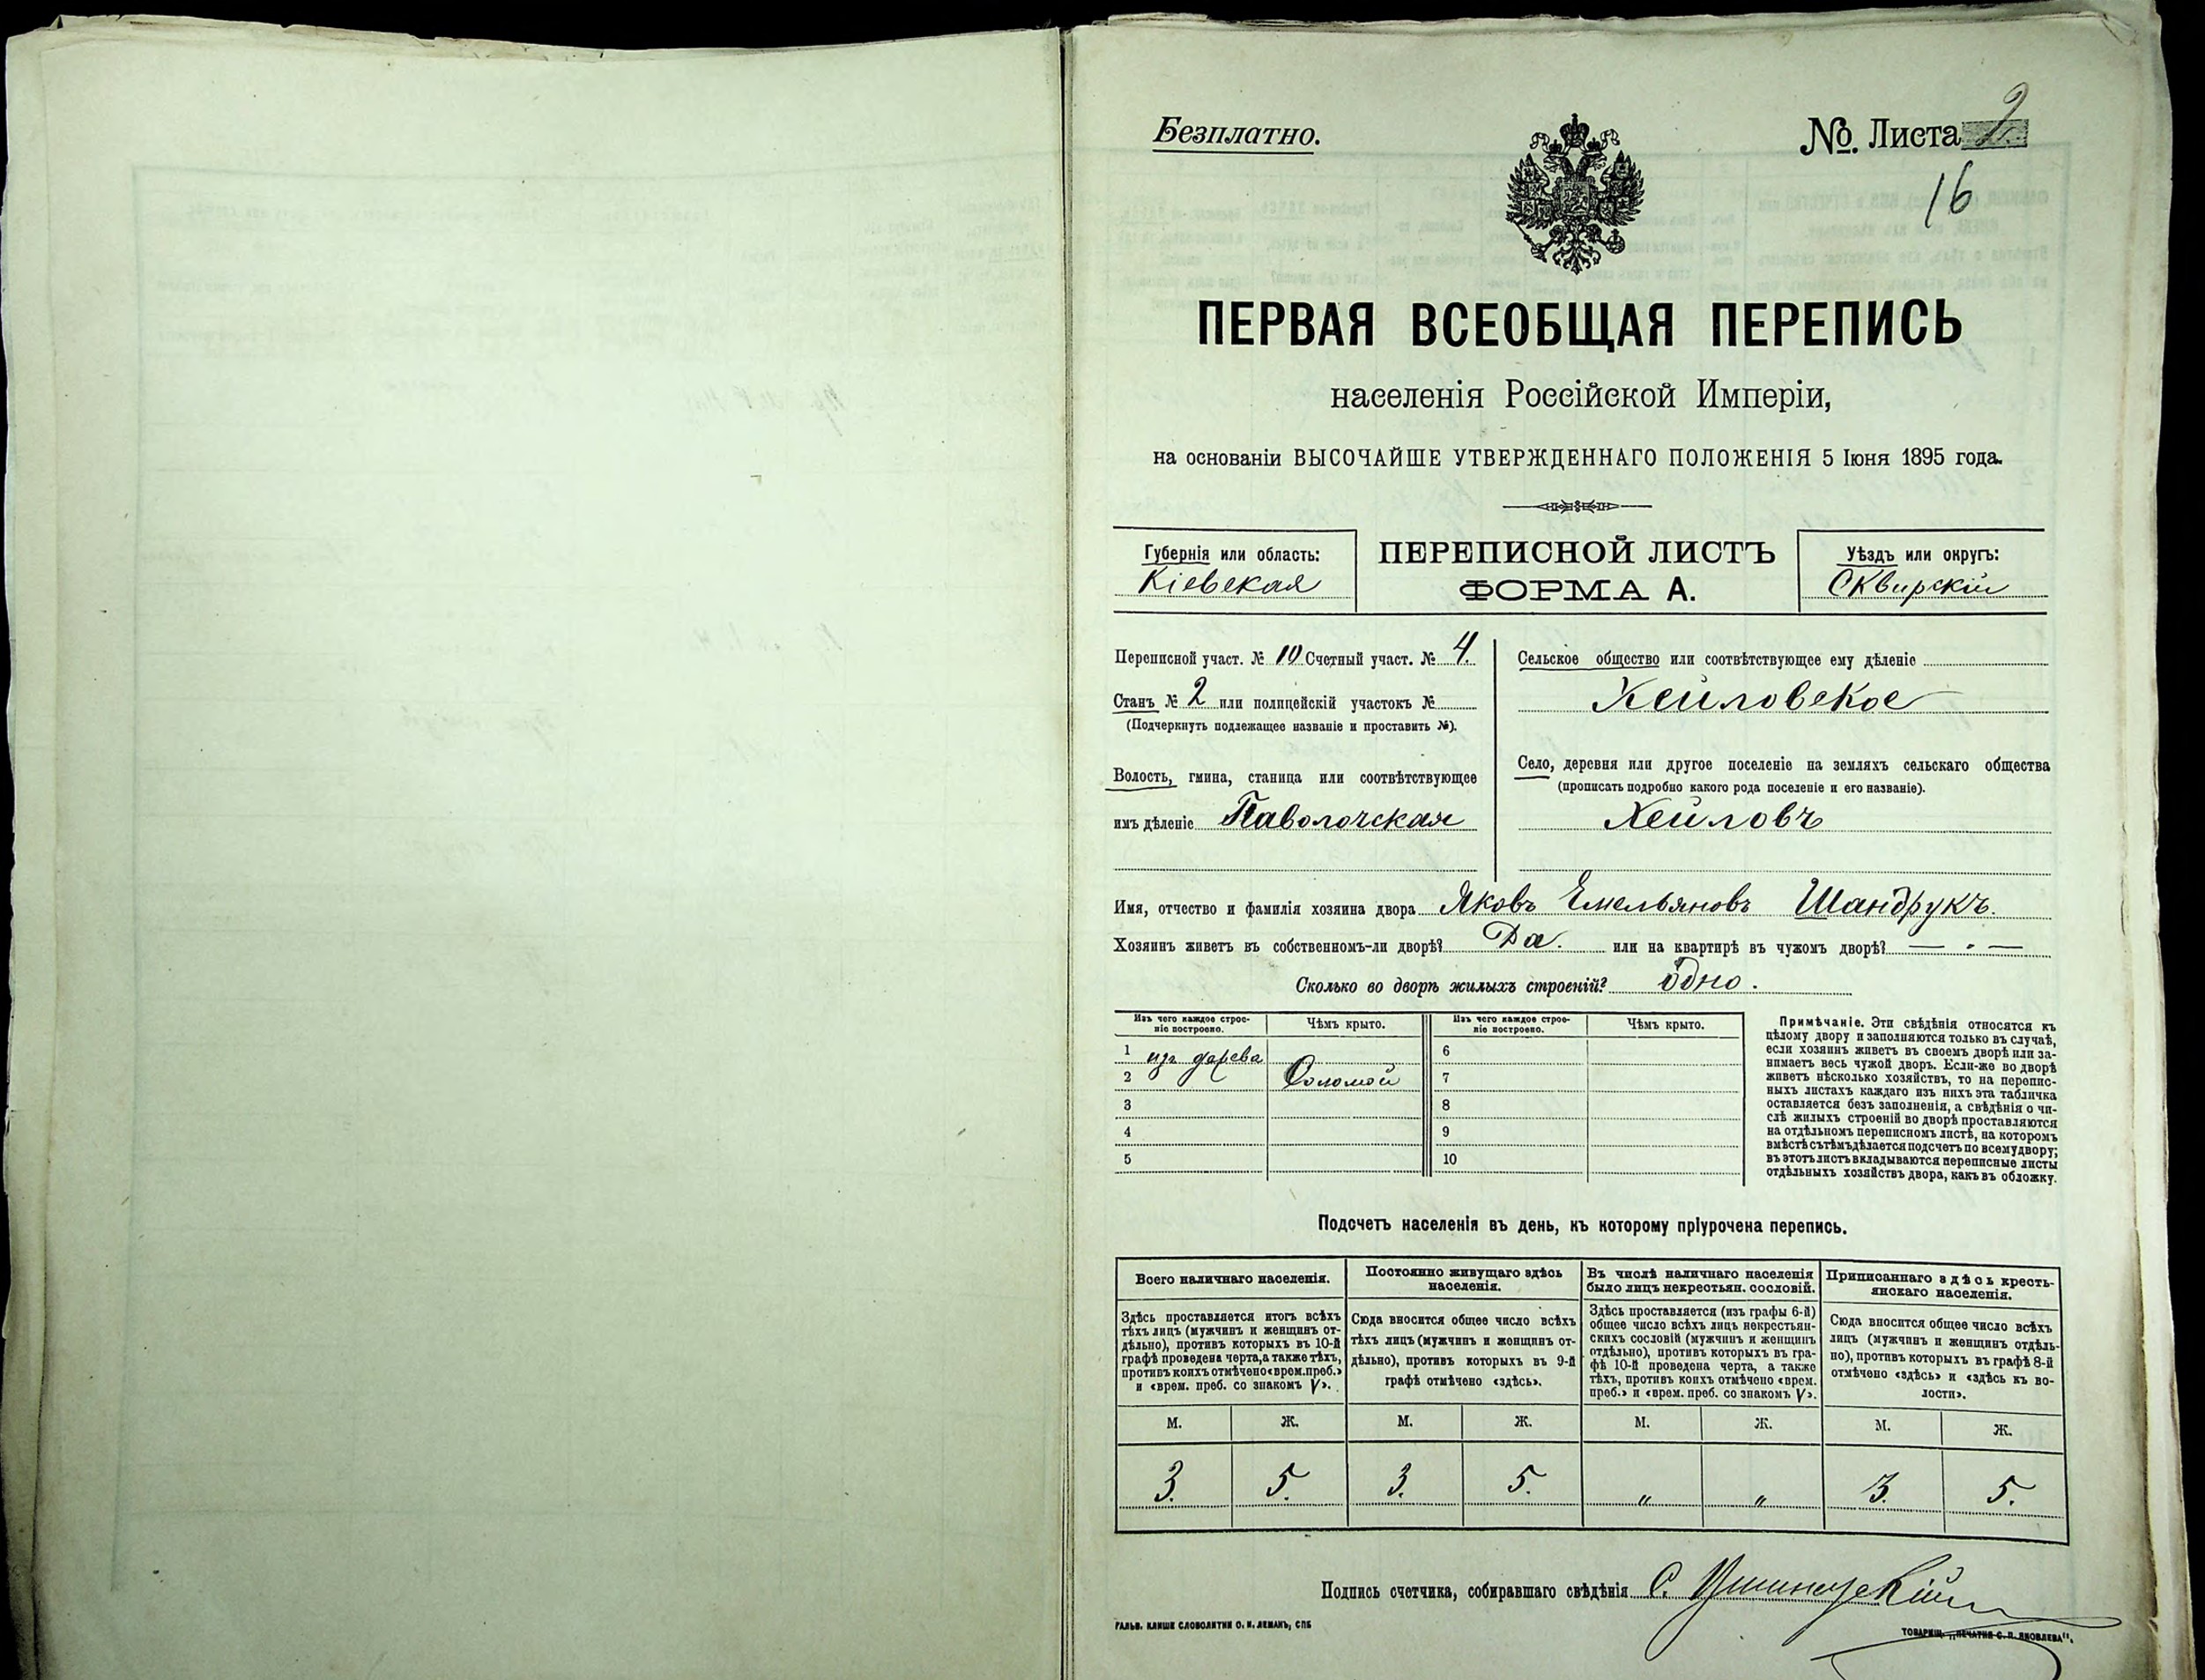 Безплатно.
№. Листа 9
16
ПЕРВАЯ ВСЕОБЩАЯ ПЕРЕПИСЬ
населенія Россійской Имперіи,
на основаніи ВЫСОЧАЙШЕ УТВЕРЖДЕННАГО ПОЛОЖЕНІЯ 5 Іюня 1895 года.
Губернія или область:
Кіевская
ПЕРЕПИСНОЙ ЛИСТЪ
ФОРМА А.
Уѣздъ или округъ:
Сквирскій
Переписной участ. № 10 Счетный участ. № 4.
Станъ № 2 или полицейскій участокъ №
(Подчеркнуть подлежащее названіе и проставить №).
Волость, гмина, станица или соотвѣтствующее
имъ дѣленіе Паволочская
Сельское общество или соотвѣтствующее ему дѣленіе
Хейловское
Село, деревня или другое поселеніе на земляхъ сельскаго общества
(прописать подробно какого рода поселеніе и его названіе).
Хейловъ
Имя, отчество и фамилія хозяина двора Яковъ Емельяновъ Шандрукъ.
Хозяинъ живетъ въ собственномъ-ли дворѣ? Да. или на квартирѣ въ чужомъ дворѣ? — . —
Сколько во дворѣ жилыхъ строеній? одно.
Изъ чего каждое строе-
ніе построено.
Чѣмъ крыто.
Изъ чего каждое строе-
ніе построено.
Чѣмъ крыто.
1 изъ дерева 6
2 Соломой 7
3 8
4 9
5 10
Примѣчаніе. Эти свѣдѣнія относятся къ
цѣлому двору и заполняются только въ случаѣ,
если хозяинъ живетъ въ своемъ дворѣ или за-
нимаетъ весь чужой дворъ. Если-же во дворѣ
живетъ нѣсколько хозяйствъ, то на перепис-
ныхъ листахъ каждаго изъ нихъ эта табличка
оставляется безъ заполненія, а свѣдѣнія о чи-
слѣ жилыхъ строеній во дворѣ проставляются
на отдѣльномъ переписномъ листѣ, на которомъ
вмѣстѣ съ тѣмъ дѣлается подсчетъ по всему двору;
въ этотъ листъ вкладываются переписные листы
отдѣльныхъ хозяйствъ двора, какъ въ обложку.
Подсчетъ населенія въ день, къ которому пріурочена перепись.
Всего наличнаго населенія.
Здѣсь проставляется итогъ всѣхъ
тѣхъ лицъ (мужчинъ и женщинъ от-
дѣльно), противъ которыхъ въ 10-й
графѣ проведена черта, а также тѣхъ,
противъ коихъ отмѣчено «врем. преб.»
и «врем. преб. со знакомъ V».
Постоянно живущаго здѣсь
населенія.
Сюда вносится общее число всѣхъ
тѣхъ лицъ (мужчинъ и женщинъ от-
дѣльно), противъ которыхъ въ 9-й
графѣ отмѣчено «здѣсь».
Въ числѣ наличнаго населенія
было лицъ некрестьян. сословій.
Здѣсь проставляется (изъ графы 6-й)
общее число всѣхъ лицъ некрестьян-
скихъ сословій (мужчинъ и женщинъ
отдѣльно), противъ которыхъ въ гра-
фѣ 10-й проведена черта, а также
тѣхъ, противъ коихъ отмѣчено «врем.
преб.» и «врем. преб. со знакомъ V».
Приписаннаго здѣсь кресть-
янскаго населенія.
Сюда вносится общее число всѣхъ
лицъ (мужчинъ и женщинъ отдѣль-
но), противъ которыхъ въ графѣ 8-й
отмѣчено «здѣсь» и «здѣсь къ во-
лости».
М. Ж. М. Ж. М. Ж. М. Ж.
3. 5. 3. 5. " " 3. 5.
Подпись счетчика, собиравшаго свѣдѣнія С.
ГАЛЬВ. КЛИШЕ СЛОВОЛИТНИ О. И. ЛЕМАНЪ, СПБ
ТОВАРИЩ. „ПЕЧАТНЯ С. П. ЯКОВЛЕВА".